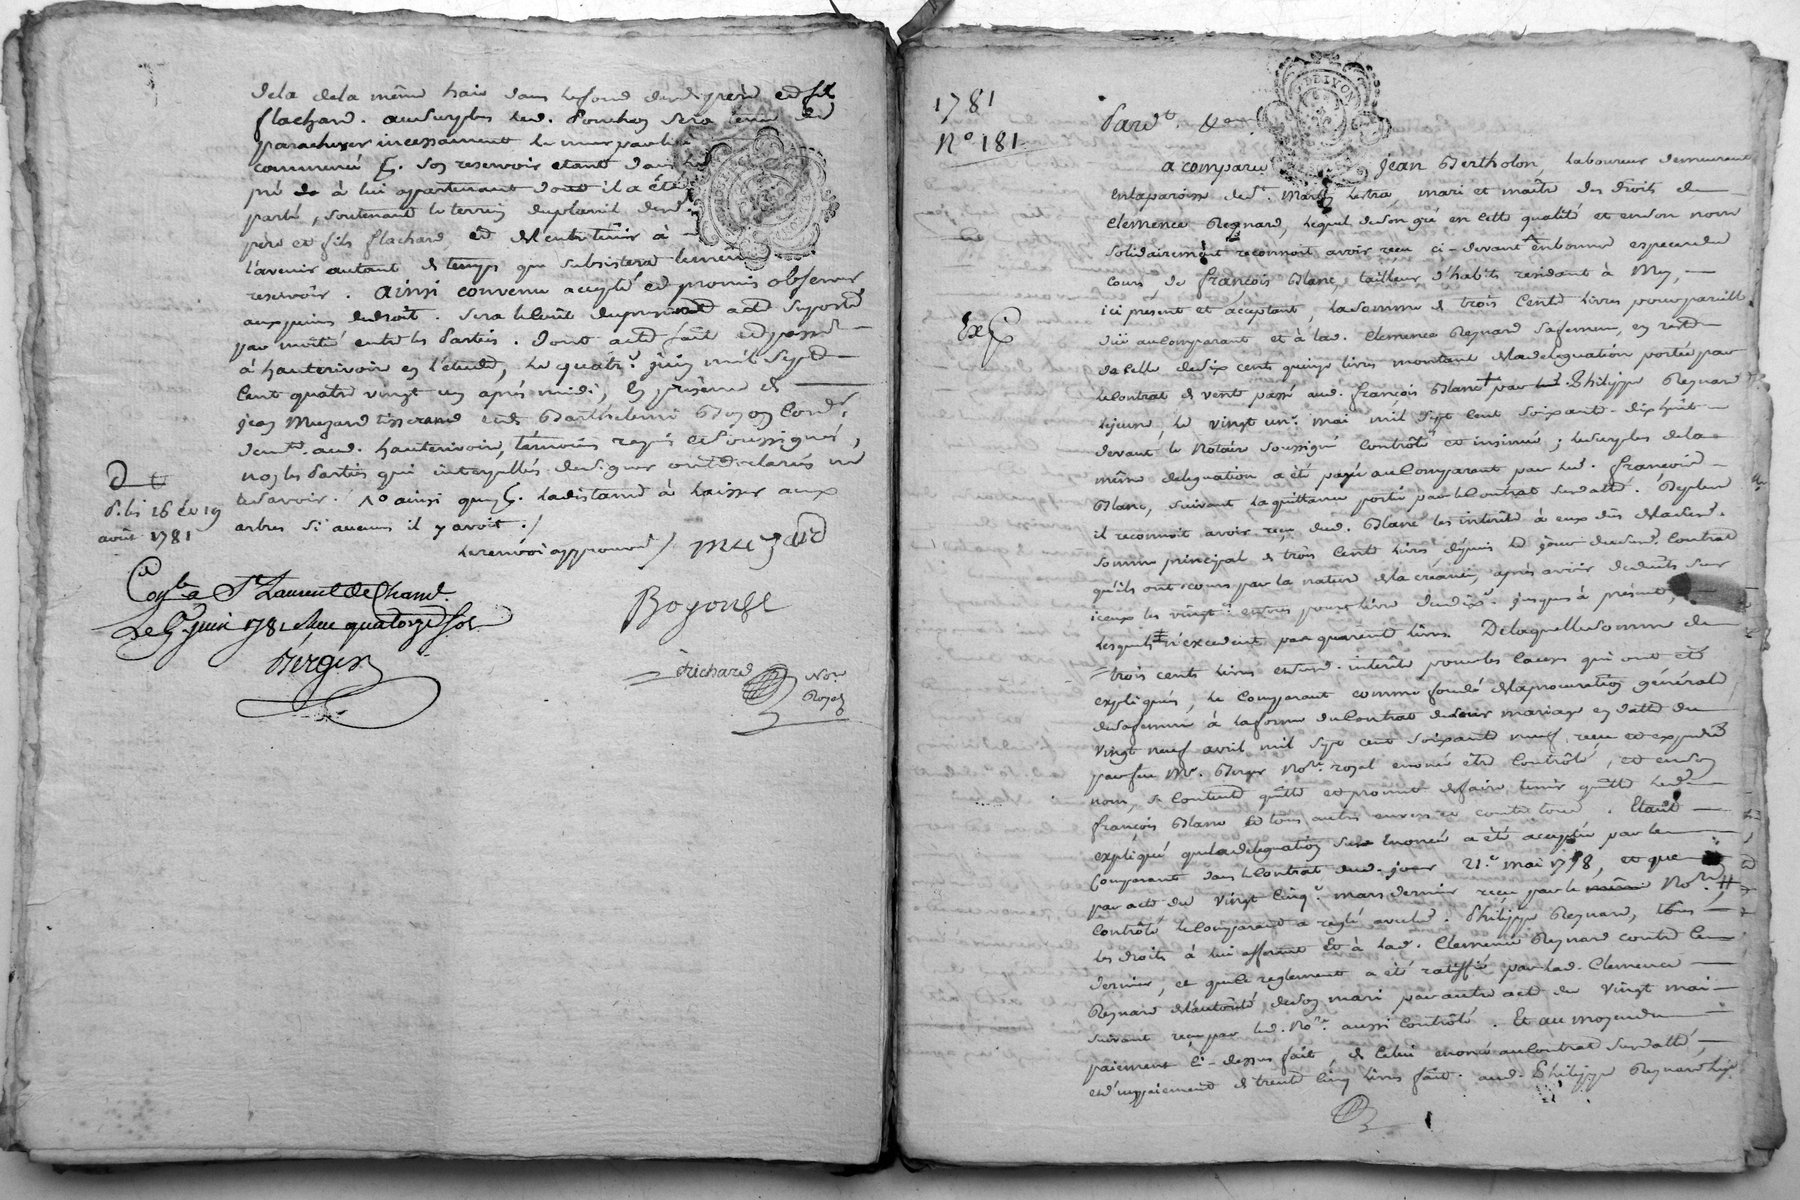 dela dela même haie dans le fond desd. père et fils
flachard. au surplus led. Ponchon sera tenu de
parachever incessament le mur par lui
commencé son reservoir etant dans le
pré de à lui appartenant dont il a été
parlé, soutenant le terrein du plamil desd.
père et fils flachard, et de l'entretenir à
l'avenir autant de temps que subsistera le meme
reservoir. Ainsi convenu accepté et promis observer
aux peines de droit. sera le Coût du present acte suporté
par moitié entre les Parties. Dont acte fait et passé
à hauterivoire en l'étude, le quatr.e juin mil sept
Cent quatre vingt un après midi, En présence de
jean Muzard tisserand et de Barthelemi Boyon Cord.r
dem.t aud. hauterivoire, témoins requis et soussignés,
non les Parties qui interpellés de signer ont declarés ne
le savoir. ainsi que la distance à laisser aux
arbres si aucuns il y avoit ./
le renvoi approuvé / muzard
D t
d. les 16 et 19
août 1781
C.lé a St Laurent de Cham.t
Le juin 1781 Reçu quatorze sols
Berger
Boyonse
Richard No.re
Royal
1781
No 181
Exp
Pard.t &
a comparu Jean Bertholon, laboureur demeurant
en la paroisse de St. Martin lestra, mari et maître des droits de
Clemence Reynard, lequel de son gré en cette qualité et en son nom
Solidairement reconnoit avoir reçu ci-devant en bonnes especes du
Cours, de François Blanc, tailleur d'habits residant à Mey,
ici present et acceptant, la somme de trois Cents livres pour pareille
düe au Comparant et à lad. Clemence Reynard sa femme, en reste
de celle de six cents quinze livres montant de la deleguation portée par
le Contrat de vente passé aud. françois Blanc par Philippe Reynard
le jeune, le vingt un.e mai mil sept Cent soixante-dix huit
devant le Notaire soussigné Contrôlé et insinué; le surplus de la
même delegation a été payé au Comparant par led. François
Blanc, suivant la quittance portée par le Contrat susdatté. De plus
il reconnoit avoir reçu dud. Blanc les intérêts à eux dûs de lad.
somme principal de trois Cents livres depuis le jour dud. Contrat
qu'ils ont eu cours par la nature de la creance, après avoir deduits sur
iceux les vingt.e entiers pour livre jusques à présent,
lesquels n'excedent pas quarente livres. De laquelle somme de
trois cents livres et intérêts pour les causes qui ont été
expliquées, le Comparant comme fondé de la procuration générale
de sa femme à la forme du Contrat de leur mariage en datte du
vingt neuf avril mil sept cent soixante neuf, reçu et expedié
par feu Me. Berger No.re royal enoncé être Contrôlé, et en son
nom, se Contente quitte et promet de faire tenir quitte led.
françois Blanc de tous autres envers et contre tous. Etant
expliqué que la delegation sus enoncée a été acceptée par le
Comparant dans le Contrat dud. jour 21.e mai 1778, et que
par acte du vingt Cinq.e mars dernier reçu par le même No.re
Contrôlé le Comparant a reglé avec led. Philippe Reynard, tous
les droits à lui afferent Et à lad. Clemence Reynard contre ce
dernier, et que le reglement a été ratiffié par lad. Clemence
Reynard de l'autorité, de son mari par autre acte du vingt mai
suivant reçu par led. No.re aussi Contrôlé. Et au moyen du
paiement Ci-dessus fait, de Celui enoncé au Contrat susdatté,
et d'un paiement de trente Cinq livres fait aud. Philippe Reynard